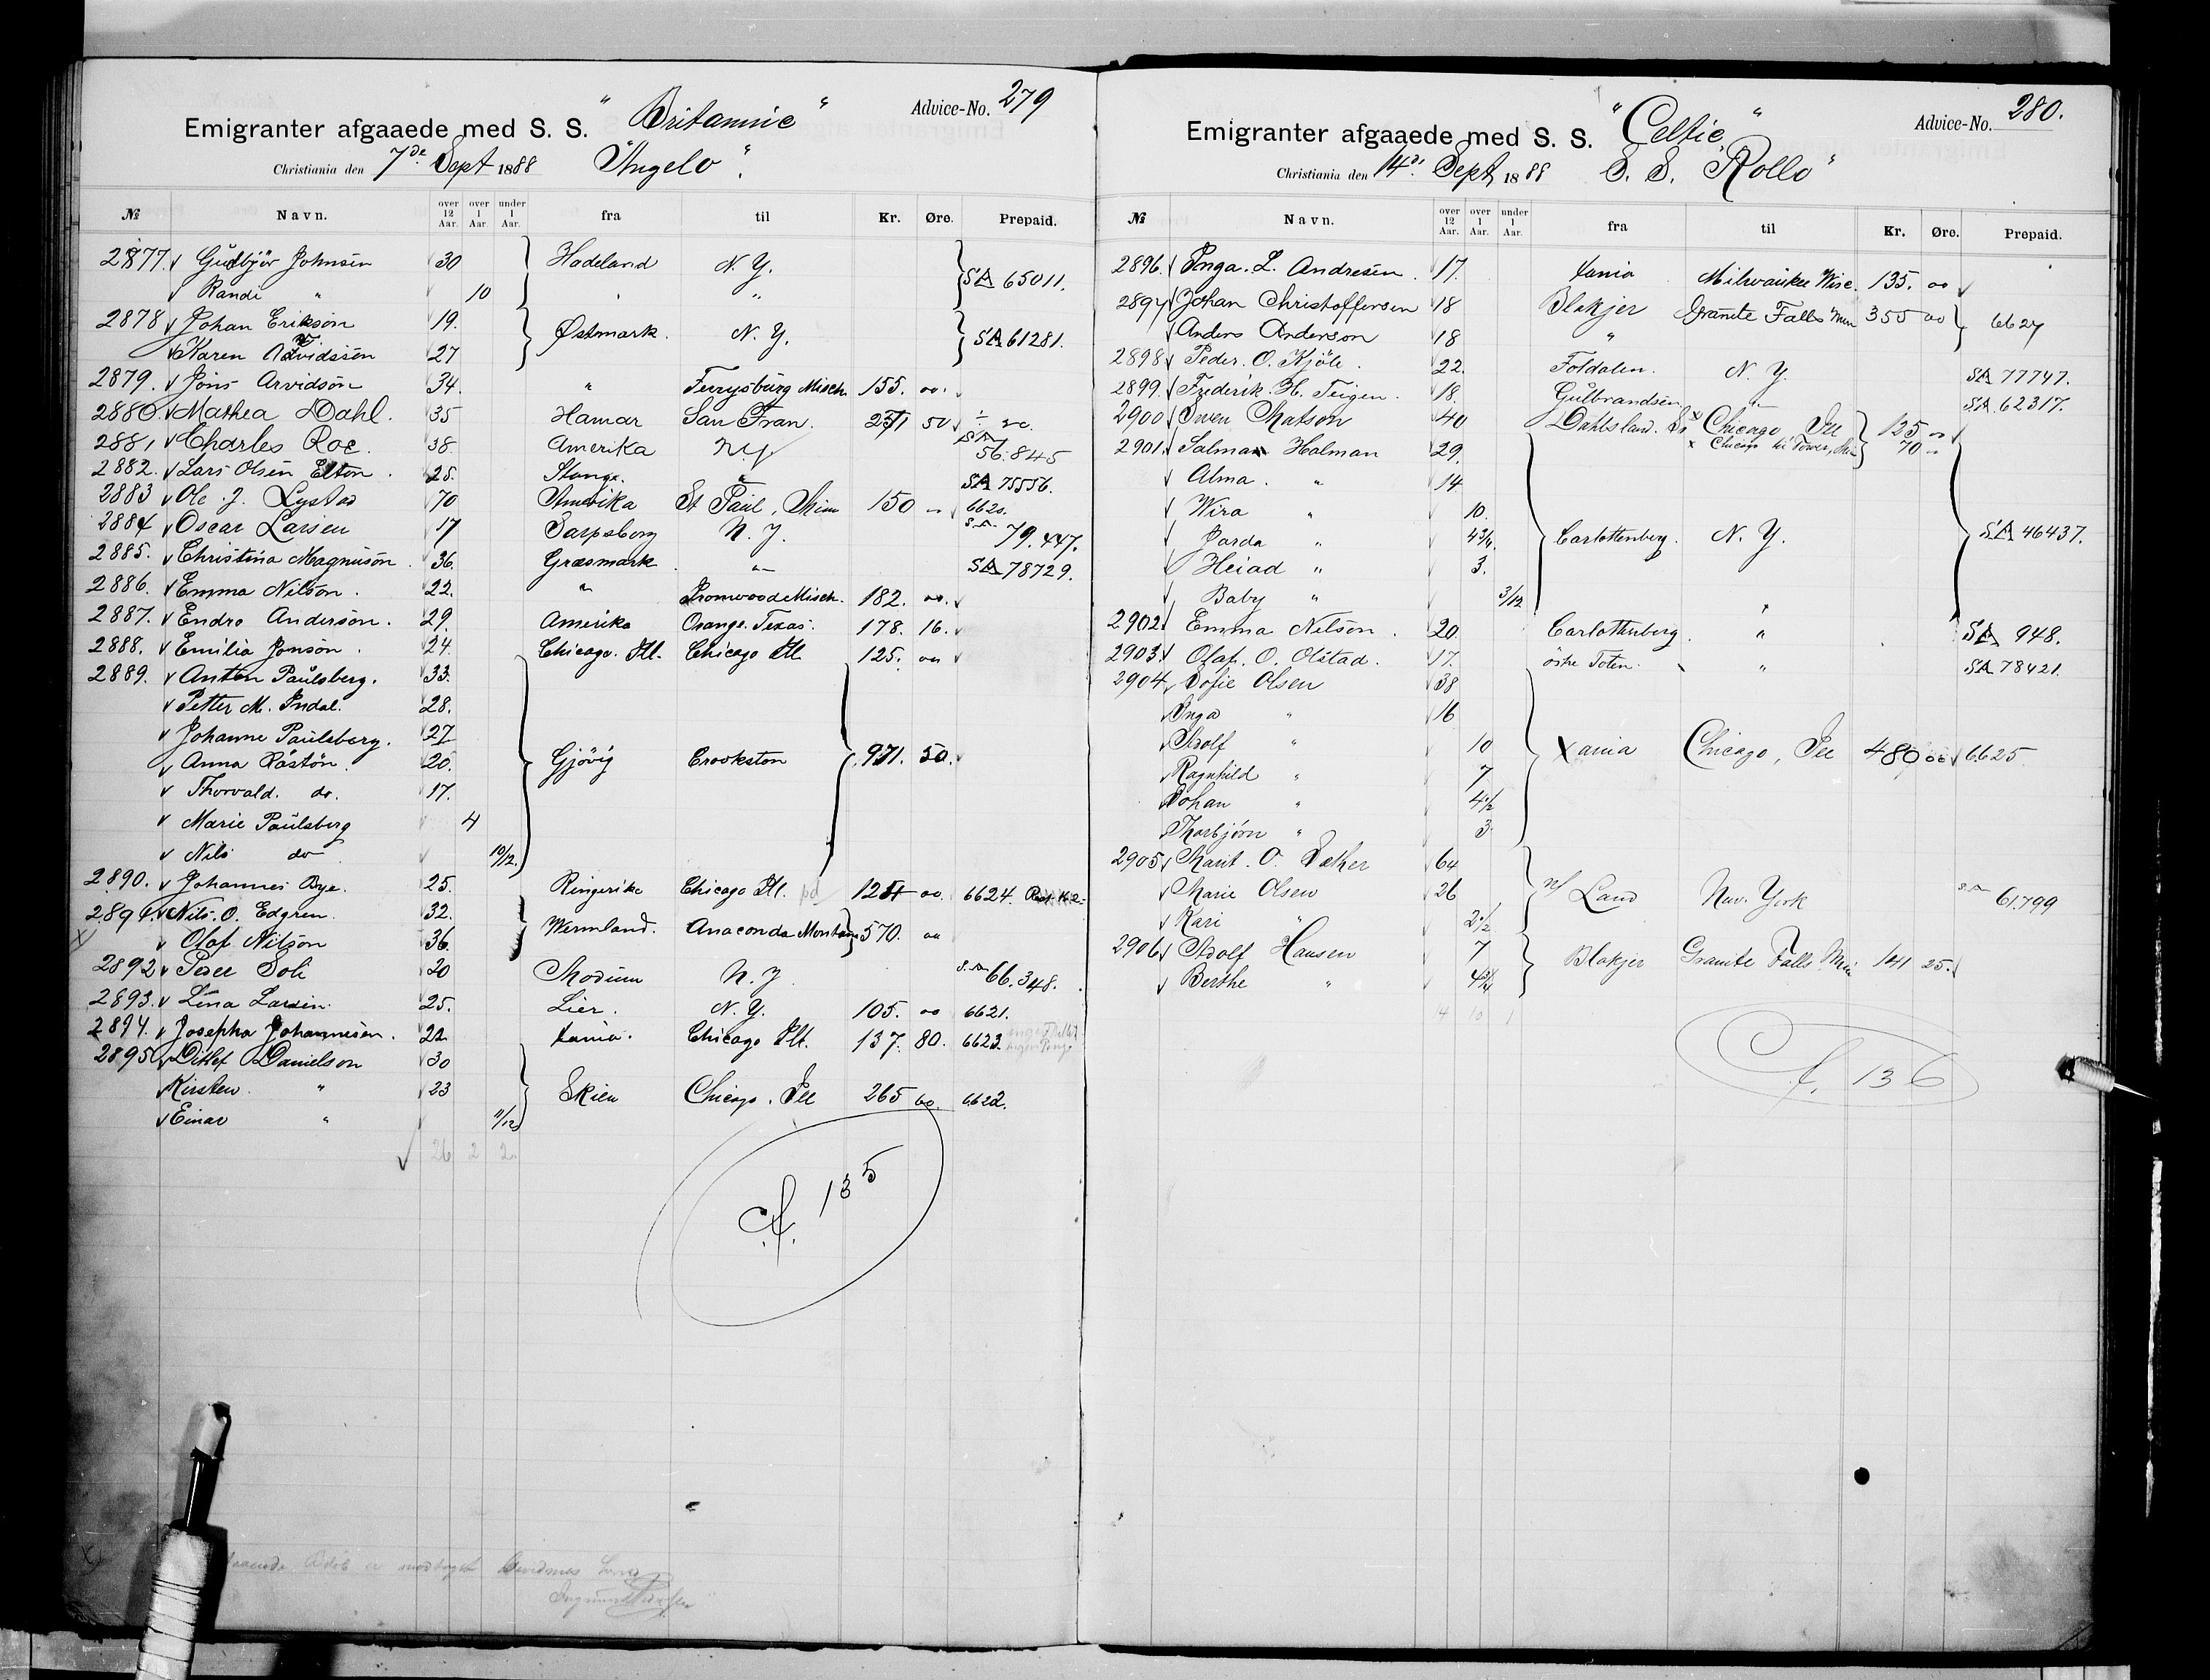 Emigranter afgaaede med S. S. "Britannic" Advice-No. 279
Christiania den 7de Sept 1888 "Angelo".
№ Navn. over 12 Aar. over 1 Aar. under 1 Aar. fra til Kr. Øre. Prepaid.
2877. Gudbjör Johnsen 30 Hadeland N. Y. SA 65011.
Randi " 10 " "
2878 Johan Erikson 19. Østmark. N. Y. SA 61281.
Karen Arvidssen 27
2879. Jöns Arvidson 34. " Ferrysburg Misch. 155. 00.
2880 Mathea Dahl. 35 Hamar San Fran. 50
2881 Charles Roe. 38. Amerika N.Y. SA 56.845
2882. Lars Olsen Elton. 28. Stange. " SA 75556.
2883 Ole J. Lystad 70 Amerika St Paul, Minn 150 " 6620.
2884 Oscar Larsen 17 Sarpsborg N. Y. S.A. 79.447.
2885. Christina Magnuson. 36. Græsmark. " SA 78729.
2886. Emma Nilson. 22. " Ironwood Misch. 182. 00.
2887. Endre Anderson. 29. Amerika Orange. Texas. 178. 16.
2888. Emilia Jonson. 24. Chicago. Ill. Chicago Ill 125. 00
2889. Anton Paulsberg. 33. Gjövig Crookston 971. 50.
Petter M. Indal. 28.
Johanne Paulsberg. 27
Anna Röstön. 20.
Thorvald. do. 17.
Marie Paulsberg 4
Nils do 10/12.
2890. Johannes Bye. 25. Ringerike Chicago Ill. pd 00 6624.
2891. Nils. O. Edgren. 32. Wermland. Anaconda Montana 570. 00
Olof Nilson 36.
2892 Peder Soli 20 Modum N. Y. S.A. 66.348.
2893. Lina Larsen. 25. Lier. N. Y. 105. 00 6621.
2894. Josepha Johannesen. 22 Xania. Chicago Ill. 137. 80. 6623.
2895 Ditlef Danielson 30 Skien Chicago. Ill 265 00. 6622.
Kirsten " 23
Einar " 11/12
26 2 2
cf. 135
Emigranter afgaaede med S. S. "Celtic" Advice-No. 280.
Christiania den 14de Sept 1888 S. S. "Rollo"
№ Navn. over 12 Aar. over 1 Aar. under 1 Aar. fra til Kr. Øre. Prepaid.
2896. Inga. L. Andresen. 17. Xania Milwaukee Wisc. 135. 00
2897 Johan Christoffersen 18 Blakjer Granite Falls Minn 355 00 6627
Anders Anderson 18 "
2898 Peder. O. Kjöli. 22. Foldalen. N. Y. SA 77747.
2899. Frederik. H. Teigen. 18. Gulbrandsen " SA. 62317.
2900 Swen Matson 40 Dahlsland. x Chicago Ill 125 "
2901. Salman Holman 29. x Chicago til Tower, Min 70 "
Alma. " 14
Wira " 10.
Jorda " 4 3/4. Carlottenberg. N. Y. SA 46437.
Heiad " 3.
Baby " 3/12
2902. Emma Nilson. 20. Carlottenberg. " SA 948.
2903. Olaf. O. Olstad. 17. östre Toten. " SA 78421.
2904 Sofie Olsen 38
Inga " 16
Adolf " 10 Xania Chicago, Ill 480 00 6625
Ragnhild " 7
Johan " 4 1/2
Thorbjörn " 3
2905 Marit. O. Sæther 64
Marie Olsen 26 n/ Land New. York S.A. 61.799
Kari " 2 1/2
2906 Adolf Hansen 7 Blakjer Granite Falls. Min 141 25.
Berthe " 4 3/4
14 10 1
cf. 136